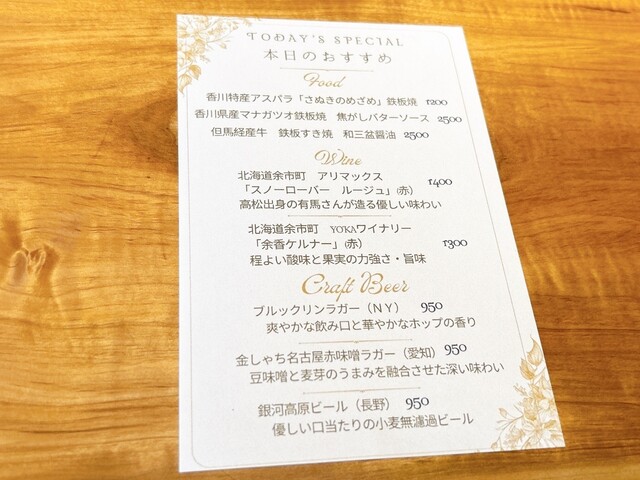 TODAY'S SPECIAL
本日のおすすめ
Food
香川特産アスパラ「さぬきのめざめ」鉄板焼 1200
香川県産マナガツオ鉄板焼 焦がしバターソース 2500
但馬経産牛 鉄板すき焼 和三盆醤油 2500
Wine
北海道余市町 アリマックス
「スノーローバー ルージュ」(赤) 1400
高松出身の有馬さんが造る優しい味わい
北海道余市町 YOKAワイナリー
「余香ケルナー」(赤) 1300
程よい酸味と果実の力強さ・旨味
Craft Beer
ブルックリンラガー(NY) 950
爽やかな飲み口と華やかなホップの香り
金しゃち名古屋赤味噌ラガー(愛知) 950
豆味噌と麦芽のうまみを融合させた深い味わい
銀河高原ビール(長野) 950
優しい口当たりの小麦無濾過ビール